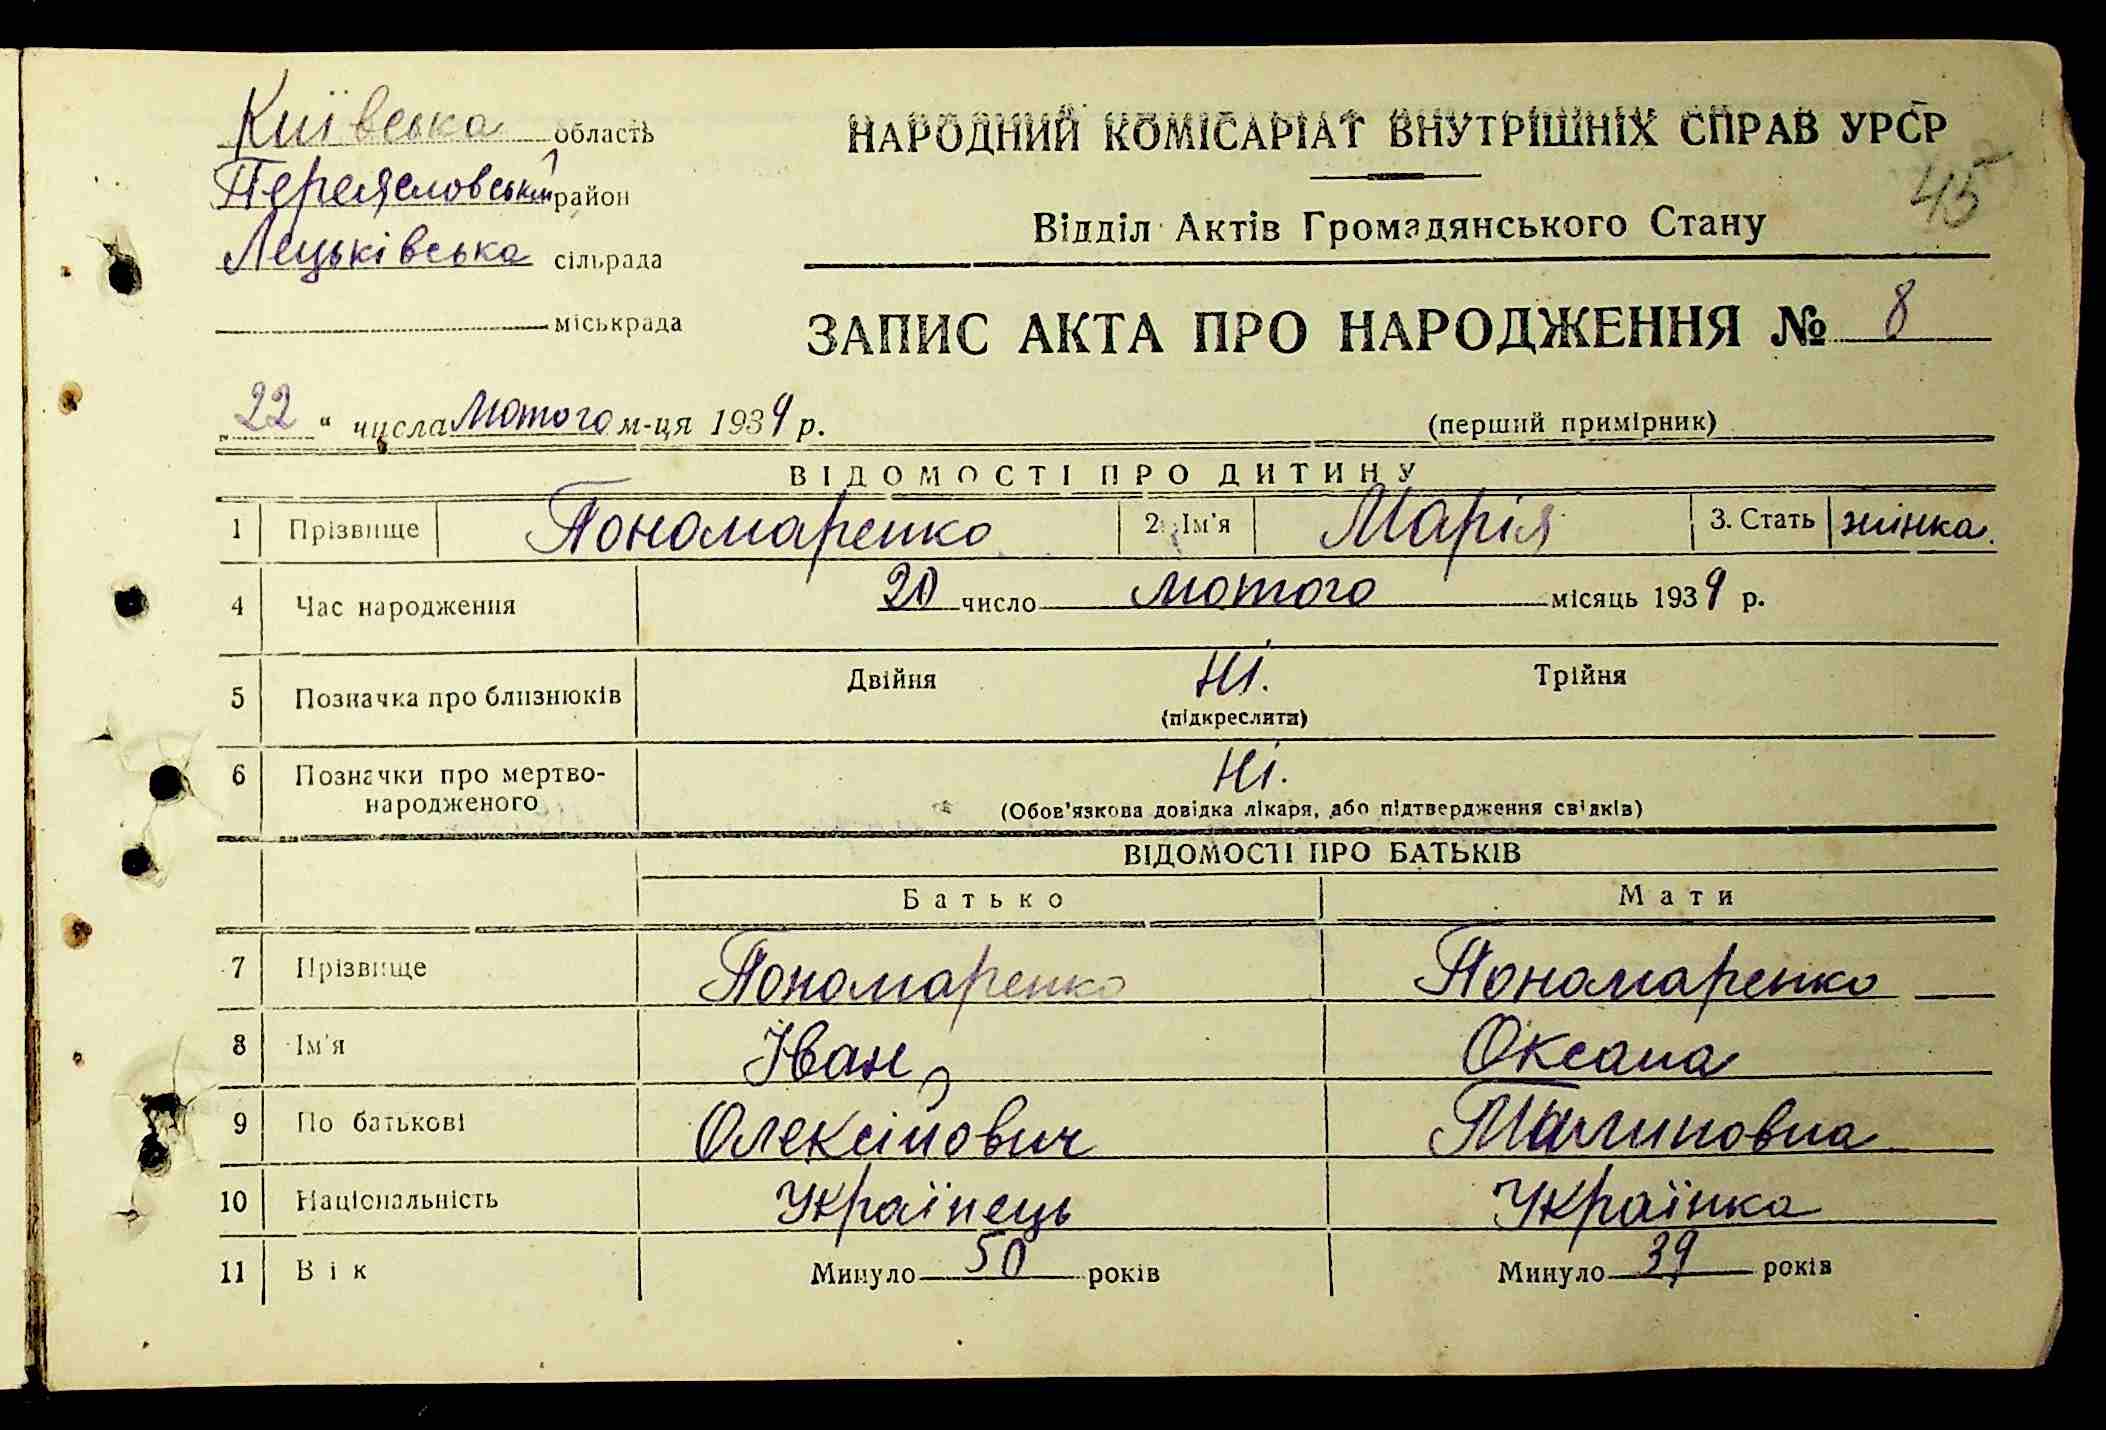 Київська область
НАРОДНИЙ КОМІСАРІАТ ВНУТРІШНІХ СПРАВ УРСР
Переясловський район
45
Відділ Актів Громадянського Стану
Лецьківська сільрада
міськрада
ЗАПИС АКТА ПРО НАРОДЖЕННЯ № 8
„22“ числа Лютого м-ця 1939 р.
(перший примірник)
ВІДОМОСТІ ПРО ДИТИНУ
1 Прізвище Пономаренко 2. Ім'я Марія 3. Стать жінка.
4 Час народження 20 число лютого місяць 1939 р.
5 Позначка про близнюків Двійня Ні. Трійня
(підкреслити)
6 Позначки про мертво-
народженого
Ні.
(Обов'язкова довідка лікаря, або підтвердження свідків)
ВІДОМОСТІ ПРО БАТЬКІВ
Батько Мати
7 Прізвище Пономаренко Пономаренко
8 Ім'я Іван Оксана
9 По батькові Олексійович
10 Національність Українець Українка
11 Вік Минуло 50 років Минуло 39 років